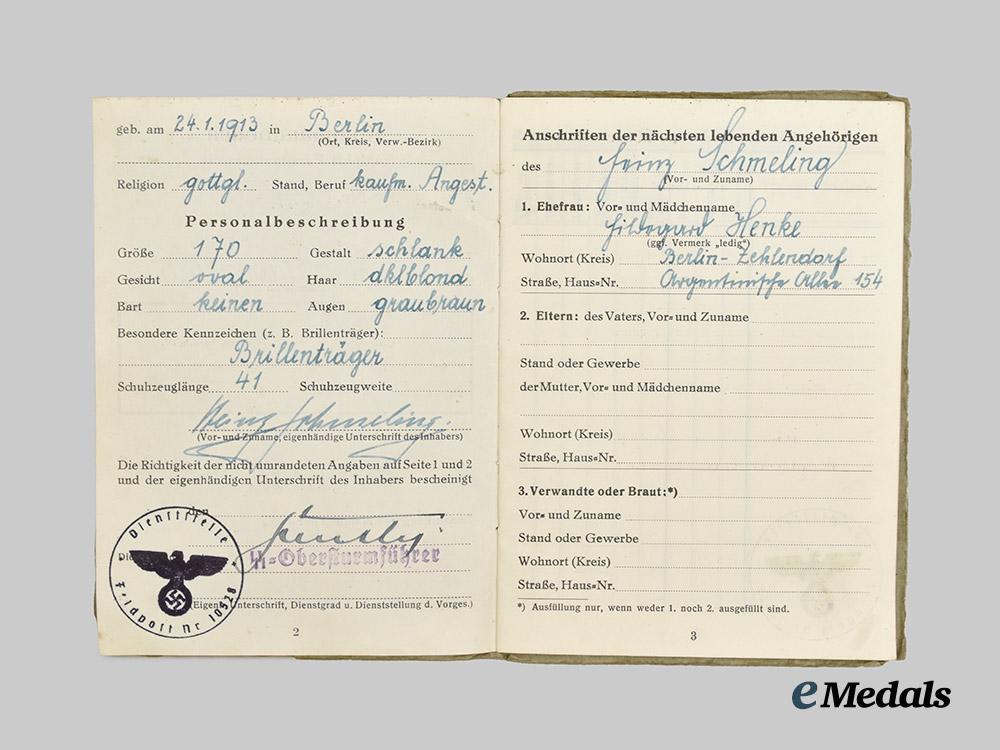 geb. am 24.1.1913 in Berlin
(Ort, Kreis, Verw.-Bezirk)
Religion gottgl. Stand, Beruf kaufm. Angest.
Personalbeschreibung
Größe 170 Gestalt schlank
Gesicht oval Haar dklblond
Bart keinen Augen graubraun
Besondere Kennzeichen (z. B. Brillenträger):
Brillenträger
Schuhzeuglänge 41 Schuhzeugweite
Heinz Schmeling.
(Vor- und Zuname, eigenhändige Unterschrift des Inhabers)
Die Richtigkeit der nicht umrandeten Angaben auf Seite 1 und 2
und der eigenhändigen Unterschrift des Inhabers bescheinigt
den
SS-Obersturmführer
Dienststelle
Feldpost Nr. 10528
(Eigenh. Unterschrift, Dienstgrad u. Dienststellung d. Vorges.)
2
Anschriften der nächsten lebenden Angehörigen
des Heinz Schmeling
(Vor- und Zuname)
1. Ehefrau: Vor- und Mädchenname
Hildegard Henke
(ggf. Vermerk „ledig“)
Wohnort (Kreis) Berlin-Zehlendorf
Straße, Haus-Nr. Argentinische Allee 154
2. Eltern: des Vaters, Vor- und Zuname
Stand oder Gewerbe
der Mutter, Vor- und Mädchenname
Wohnort (Kreis)
Straße, Haus-Nr.
3. Verwandte oder Braut:*)
Vor- und Zuname
Stand oder Gewerbe
Wohnort (Kreis)
Straße, Haus-Nr.
*) Ausfüllung nur, wenn weder 1. noch 2. ausgefüllt sind.
3
eMedals